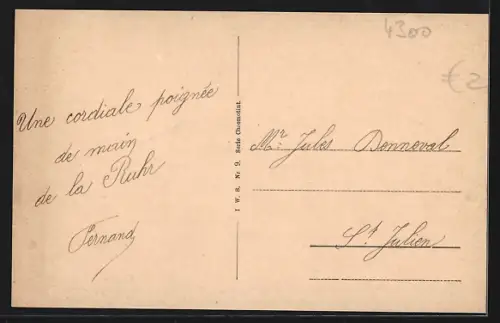 4300
€2
Une cordiale poignée
de main
de la Ruhr
Fernand
I. W. R. Nr 9. Serie Chemnitial.
Mr. Jules Donneval
St Julien